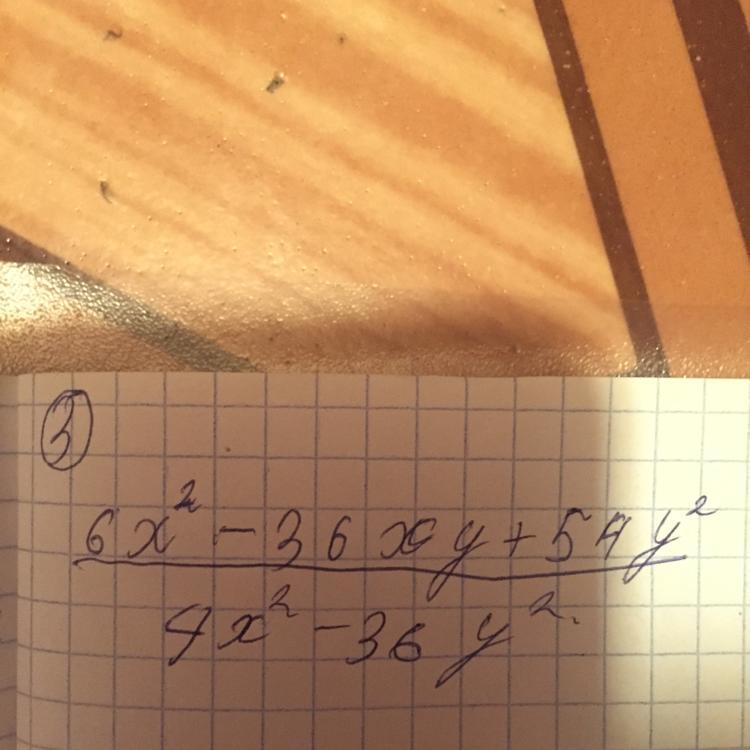 3
6x² - 36xy + 54y²
4x² - 36y²